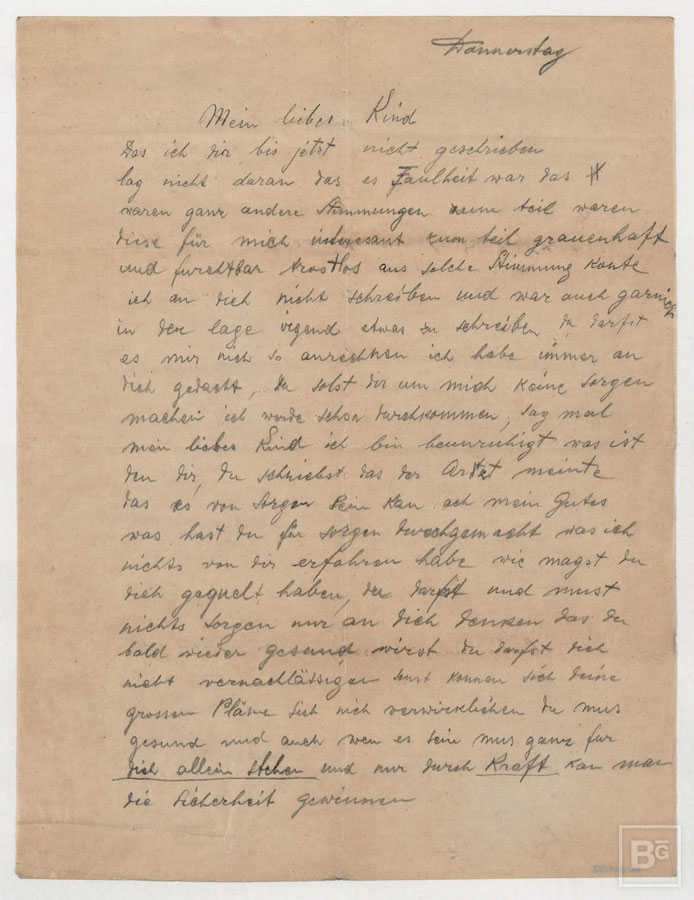 Donnerstag
Mein liebes Kind
Das ich dir bis jetzt nicht geschrieben
lag nicht daran das es Faulheit war das
waren ganz andere Stimmungen zum teil waren
diese für mich interesant zum teil grauenhaft
und furchtbar trostlos aus solche Stimmung konte
ich an dich nicht schreiben und war auch garnicht
in der lage irgend etwas zu schreiben, du darfst
es mir nich so anrechnen ich habe immer an
dich gedacht, du solst dir um mich keine sorgen
machen ich werde schon durchkommen, sag mal
mein liebes Kind ich bin beunruhigt was ist
den dir, du schriebst das der Arzt meinte
das es von sorgen sein kan ach mein Gutes
was hast du für sorgen durchgemacht was ich
nichts von dir erfahren habe wie magst du
dich gequelt haben, du darfst und must
nichts sorgen nur an dich denken das du
bald wieder gesund wirst du darfst dich
nicht vernachlässigen sonst konnen sich deine
grossen Pläne sich nich verwirklichen du mus
gesund und auch wen es sein mus ganz fur
dich allein stehen und nur durch Kraft kan man
die Sicherheit gewinnen
BG